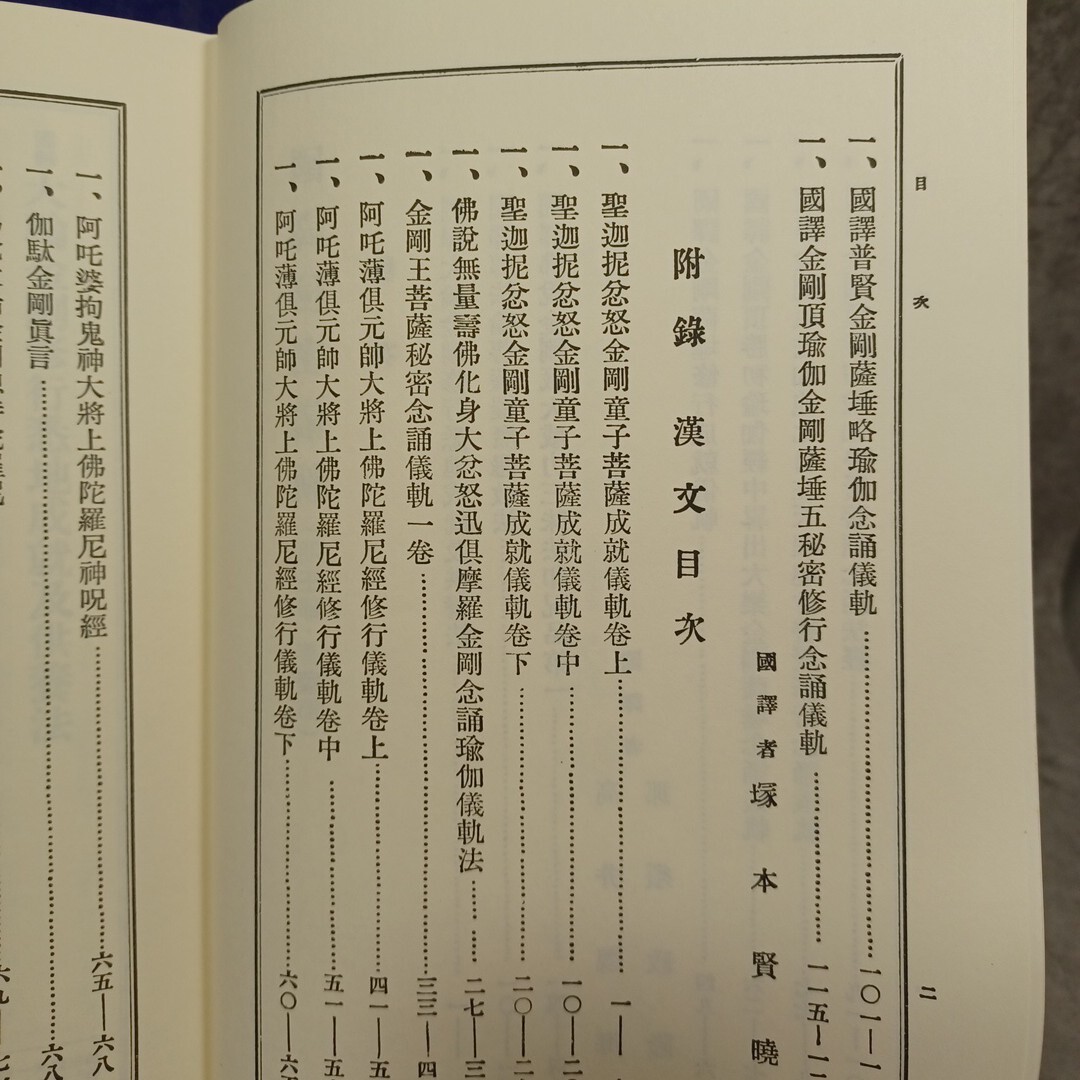 目次 二
一、國譯普賢金剛薩埵略瑜伽念誦儀軌………一〇一—一
一、國譯金剛頂瑜伽金剛薩埵五秘密修行念誦儀軌………一一五—一
國譯者 塚本賢曉
附錄 漢文目次
一、聖迦抳忿怒金剛童子菩薩成就儀軌卷上………一—
一、聖迦抳忿怒金剛童子菩薩成就儀軌卷中………一〇—二
一、聖迦抳忿怒金剛童子菩薩成就儀軌卷下………二〇—二
一、佛說無量壽佛化身大忿怒迅俱摩羅金剛念誦瑜伽儀軌法………二七—三
一、金剛王菩薩秘密念誦儀軌一卷………三三—四
一、阿吒薄俱元帥大將上佛陀羅尼經修行儀軌卷上………四一—五
一、阿吒薄俱元帥大將上佛陀羅尼經修行儀軌卷中………五一—五
一、阿吒薄俱元帥大將上佛陀羅尼經修行儀軌卷下………六〇—六
一、阿吒婆拘鬼神大將上佛陀羅尼神呪經………六五—六八
一、伽馱金剛眞言………六八